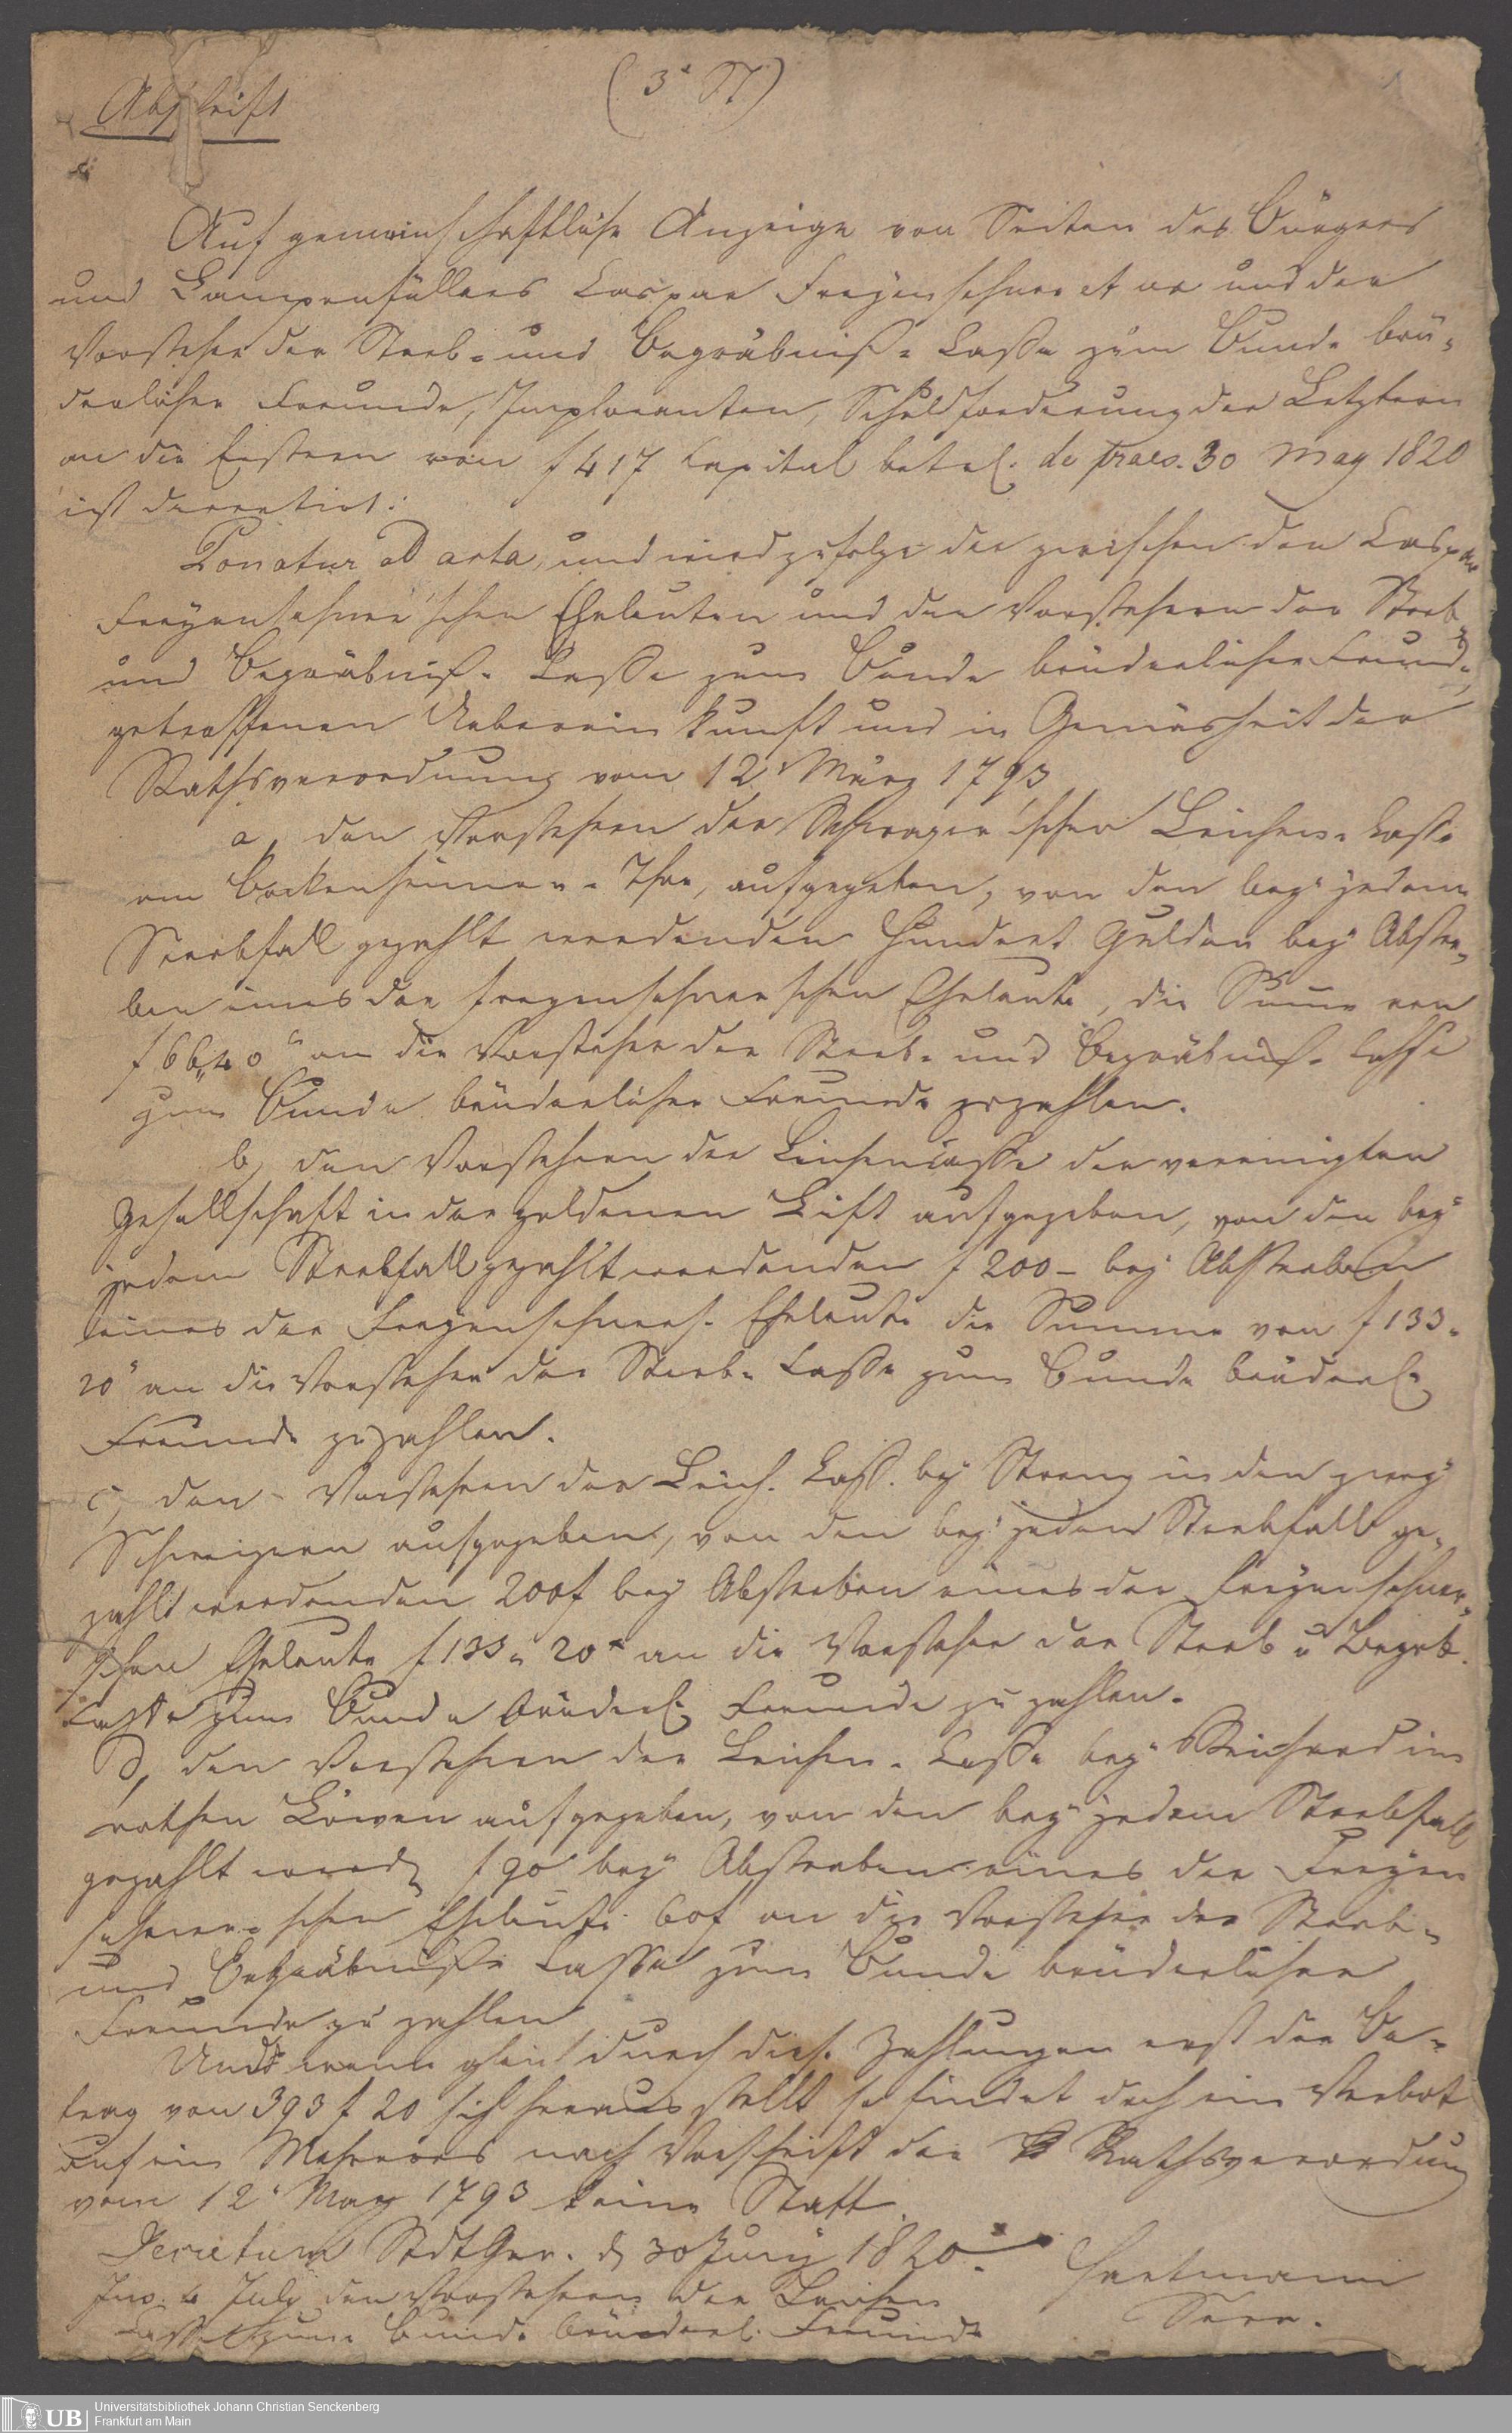 Abschrift
(3. St)
1
Auf gemeinschaftliche Anzeige von Seiten des Bürgers
und Lampenfüllers Caspar Freyenschner et ux und der
Vorsteher der Sterb- und Begräbniß-Casse zum Bunde brü-
derlicher Freunde, Imploranten, Schuldforderung der Letztern
an die Erstern von f 417 Capital betrl. de praes. 30 May 1820
ist decretirt:
Ponatur ad acta, und wird zufolge der zwischen den Caspar
Freyenschner'schen Eheleuten und den Vorstehern der Sterb-
und Begräbniß-Casse zum Bunde brüderlicher Freunde,
getroffenen Uebereinkunft und in Gemäsheit der
Rathsverordnung vom 12. März 1793
a, den Vorstehern der Schwager'schen Leichen-Casse
am Bockenheimer-Thor, aufgegeben, von den bey jedem
Sterbfall gezahlt werdenden Hundert Gulden bey Abster-
ben eines der Freyenschnerschen Eheleute, die Summe von
f 66,, 40 an die Vorsteher der Sterb- und Begräbniß-Casse
zum Bunde brüderlicher Freunde zu zahlen.
b, den Vorstehern der Leichencasse der vereinigten
Gesellschaft in der goldenen Luft aufgegeben, von den bey
jedem Sterbfall gezahlt werdenden f 200- bey Absterben
eines der Freyenschners. Eheleute die Summe von f 133.
20 an die Vorsteher der Sterb-Casse zum Bunde brüderl.
Freunde zu zahlen.
c, den Vorstehern der Leich. Cass. bey Streng in den zwey
Schweizern aufgegeben, von den bey jedem Sterbfall ge-
zahlt werdenden 200f bey Absterben eines der Freyenschner-
schen Eheleute f 133,, 20 an die Vorsteher der Sterb u Begrb.
Casse zum Bunde brüderl. Freunde zu zahlen.
d, den Vorstehern der Leichen-Casse bey Reichard im
rothen Löwen aufgegeben, von den bey jedem Sterbfall
gezahlt werd f 90 bey Absterben eines der Freyen
schner-schen Eheleute 60f an die Vorsteher der Sterb-
und Begräbniß Casse zum Bunde brüderlicher
Freunde zu zahlen
Und wenn gleich durch diese Zahlungen erst der Be-
trag von 393 f 20 sich herausstellt so findet doch ein Verbot
auf ein Mehreres nach Vorschrift der Rathsverordnung
vom 12. May 1793 keine Statt.
Decretum StdtGer. d 30 Juny 1820.
Hartmann
Secr.
Ins. 4 July den Vorstehern der Leichen
Casse zum Bunde brüderl. Freunde
UB Universitätsbibliothek Johann Christian Senckenberg
Frankfurt am Main